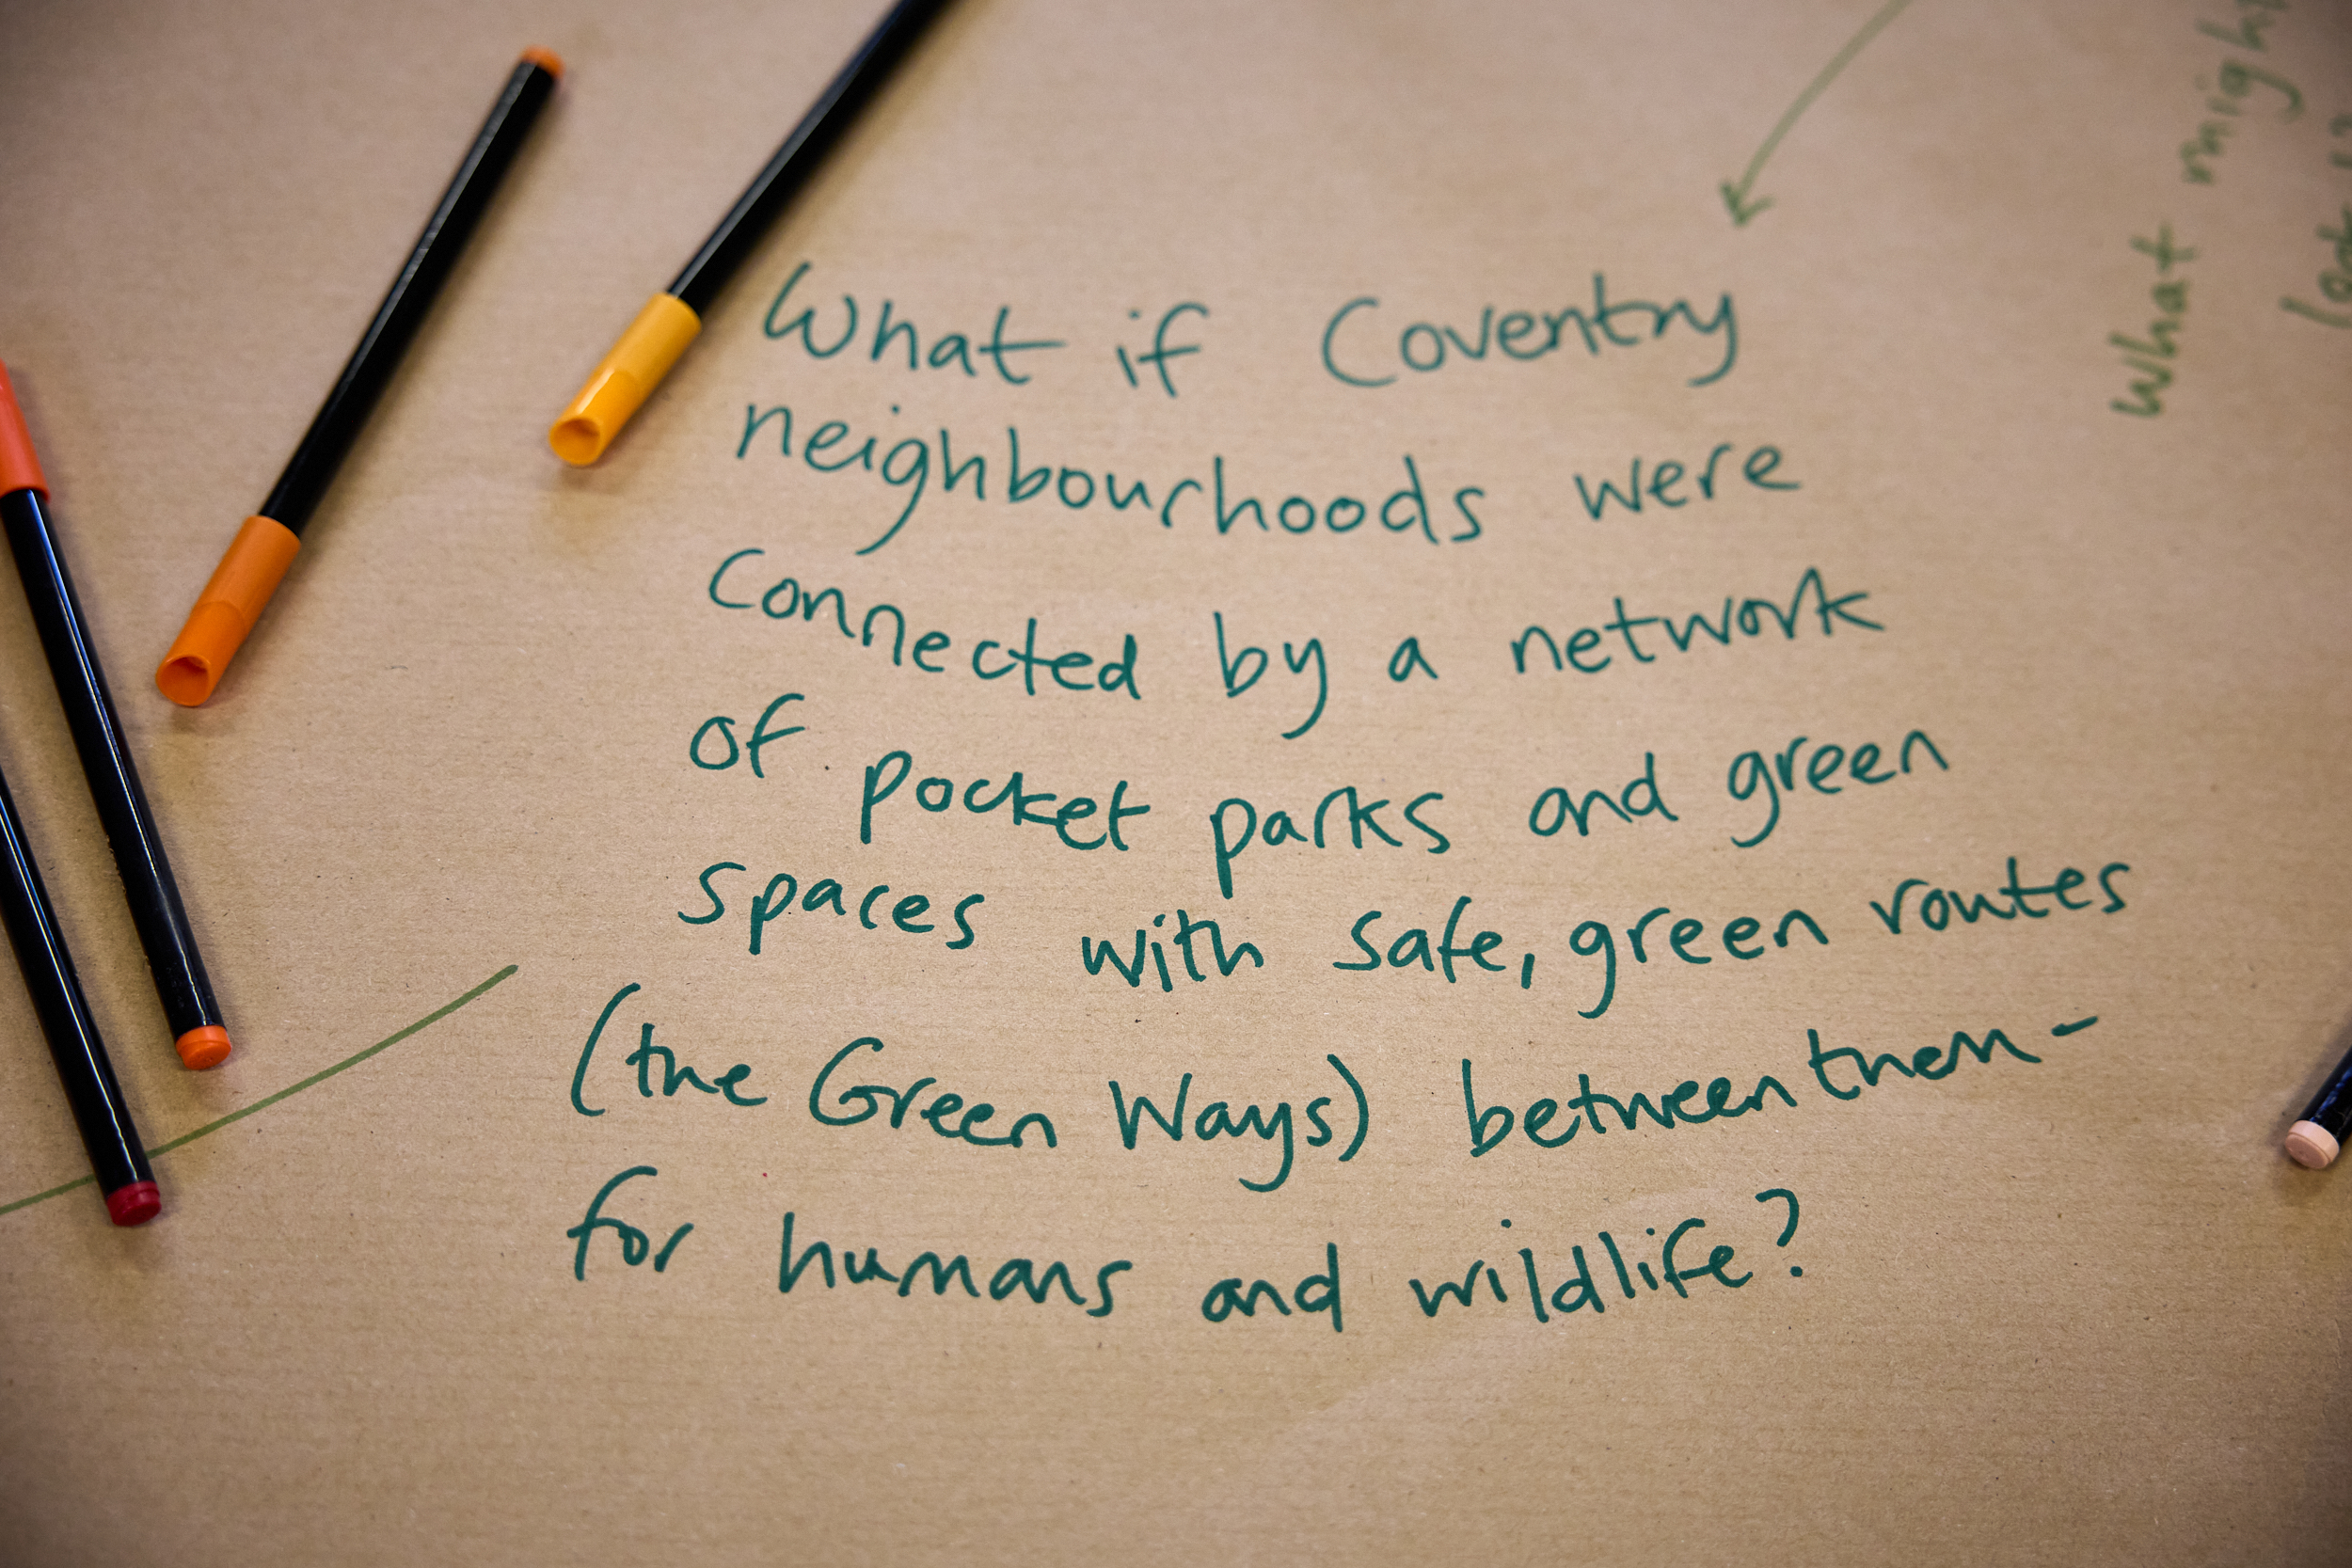 What if Coventry
neighbourhoods were
connected by a network
of pocket parks and green
spaces with safe, green routes
(the Green Ways) between them -
for humans and wildlife?
What might